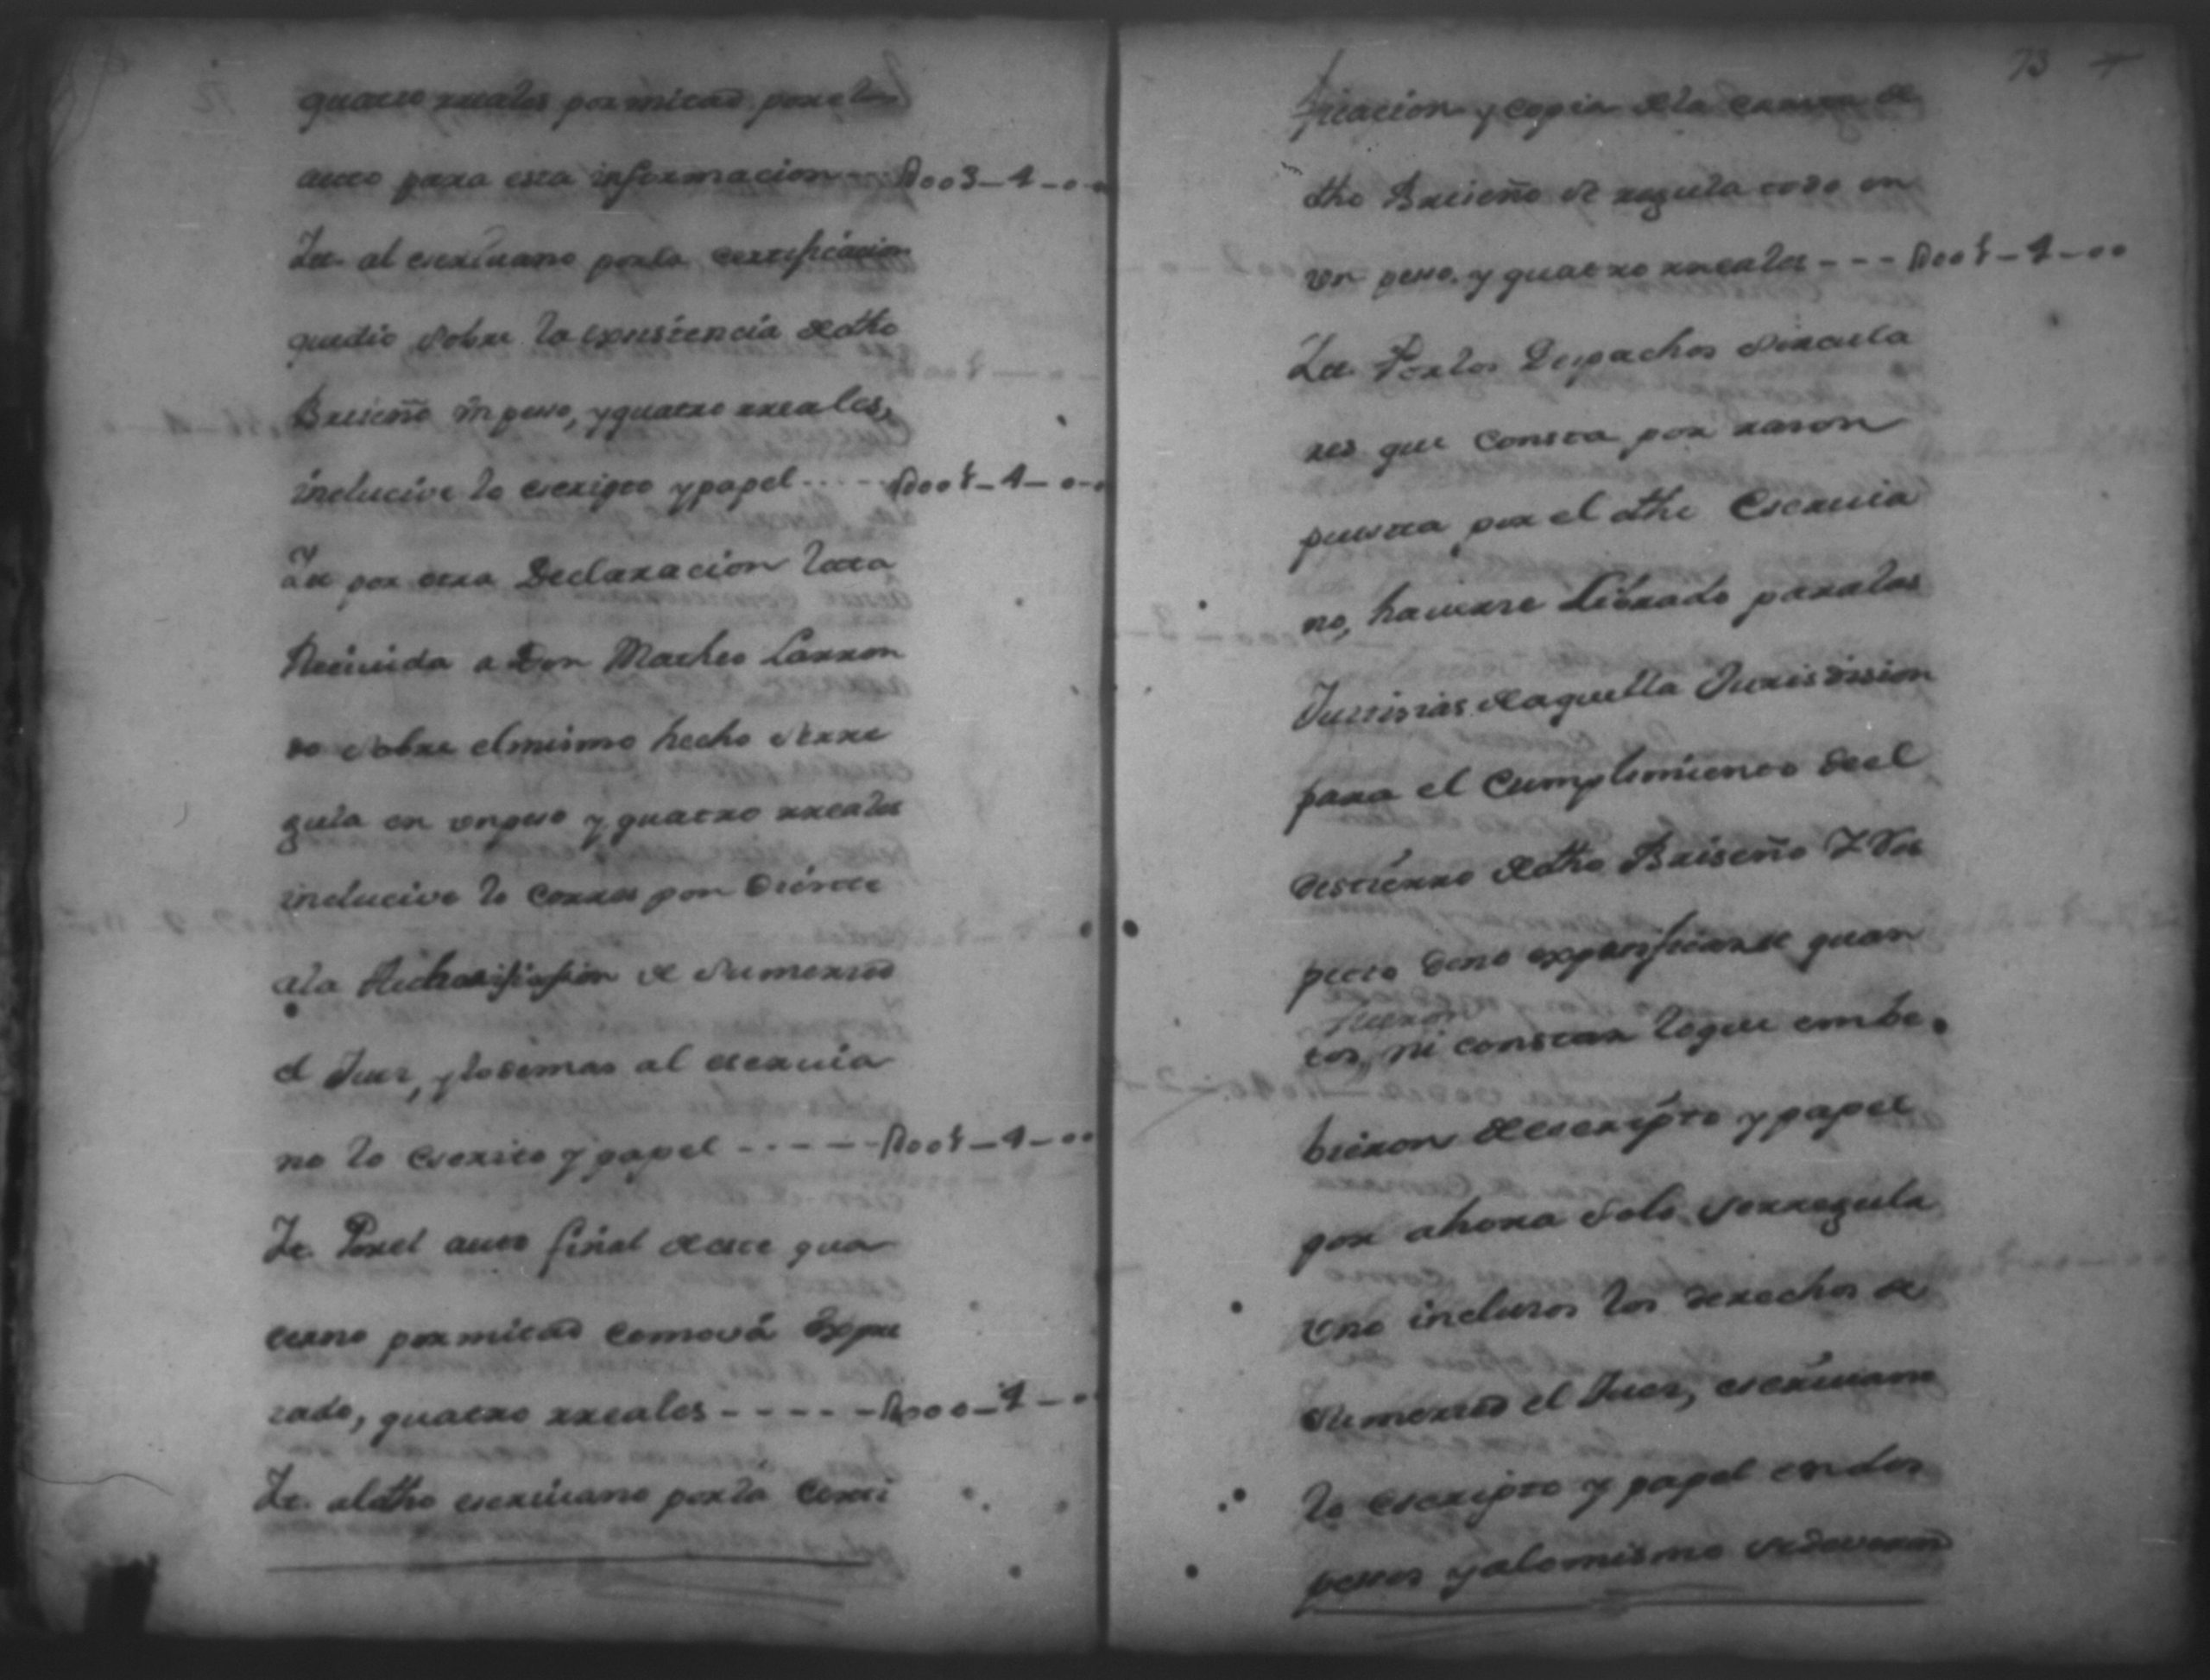 quatro rreales por mitad, por el
auto para esta informacion --- P003-4-00
Itt. al escriuano por la certificacion
que dio sobre la expistencia de dho
Briseño vn peso, y quatro rreales,
inclucive lo escripto y papel ---- P001-4-00
Itt. por otra Declaracion
Reciuida a Don Matheo Larron
do sobre el mismo hecho serre
gula en vn peso y quatro rreales
inclucive lo corres pondiente
ala de su merced
el Juez, y lo demas al escriua
no lo escrito y papel ----- P001-4-00
It. Por el auto final de este qua
terno por mitad como vá
rado, quatro rreales ----- P000-4-00
It. al dho escriuano por la Certi
73
ficacion y copia de la causa de
dho Briseño se regula todo en
vn peso. y quatro rreales --- P001-4-00
Itt. Por los Despachos Sircula
res que consta por rason
puesta por el dho Escriua
no, hauerse Librado para las
Justisias de aquella Jurisdission
para el Cumplimiento de el
destierro de dho Briseño Y Res
pecto de no expesificarse quan
fueron
tos, ni constar lo que embe
bieron de escripto y papel
por ahora Solo serregula
vno inclusos los derechos de
su merced el Juez, escriuano
lo escripto y papel en dos
pesos y alo mismo